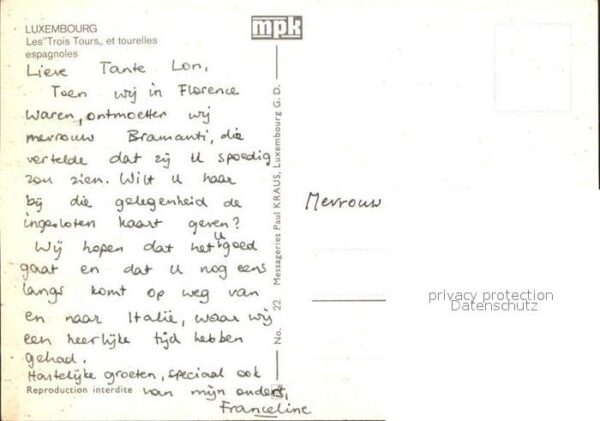 LUXEMBOURG
Les "Trois Tours„ et tourelles
espagnoles
mpk
Lieve Tante Lon,
Toen wij in Florence
waren, ontmoetten wij
mevrouw Bramanti, die
vertelde dat zij U spoedig
zou zien. Wilt U haar
bij die gelegenheid de
ingesloten kaart geven?
Wij hopen dat het U goed
gaat en dat U nog eens
langs komt op weg van
en naar Italië, waar wij
een heerlijke tijd hebben
gehad.
Hartelijke groeten, speciaal ook
van mijn ouders,
Franceline
Reproduction interdite
No. 22 Messageries Paul KRAUS, Luxembourg G. D.
Mevrouw
privacy protection
Datenschutz